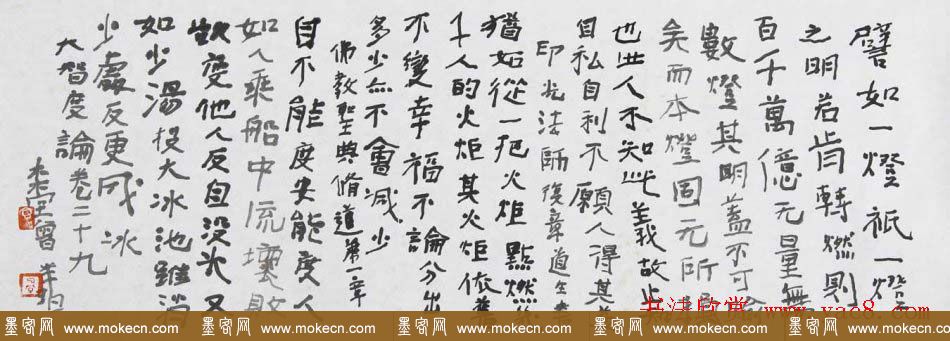 譬如一燈祇一燈
之明若肯轉燃則
百千萬億无量無
數燈其明蓋不可
矣而本燈固无所
也世人不知此義故止
自私自利不願人得其
印光法師復章道生書
猶如從一把火炬點燃
千人的火炬其火炬依舊
不變幸福不論分出
多少亦不會減少
佛教聖典修道第一章
自不能度安能度人
如人乘船中流壞敗
欲度他人反自没水又
如少湯投大冰池雖消
少處反更成冰
大智度論卷二十九
墨客网 www.mokecn.com 墨客网 www.mokecn.com 墨客网 www.mokecn.com 墨客网 www.mokecn.com 墨客网
书法欣赏 www.yac8.com